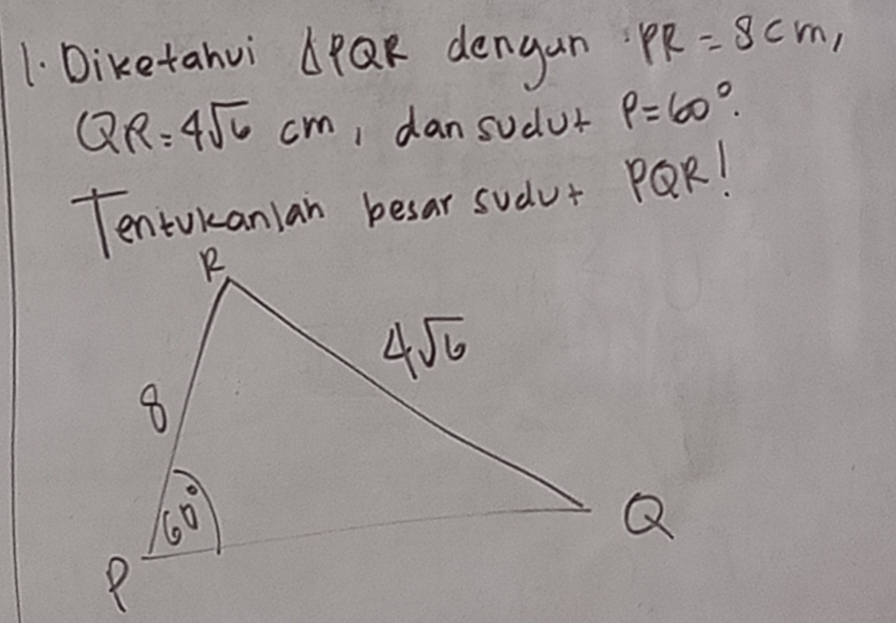 1. Diketahui ΔPQR dengan PR = 8 cm,
QR = 4√6 cm, dan sudut P = 60°.
Tentukanlah besar sudut PQR!
R
4√6
8
60°
Q
P